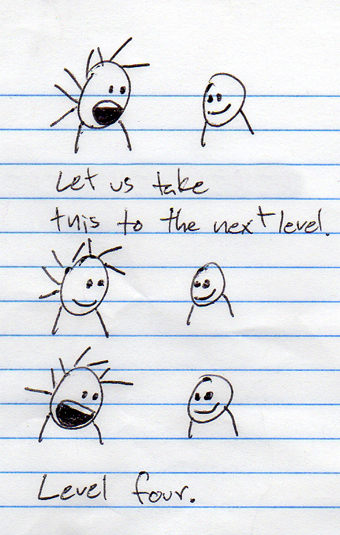 Let us take
this to the next level.
Level four.